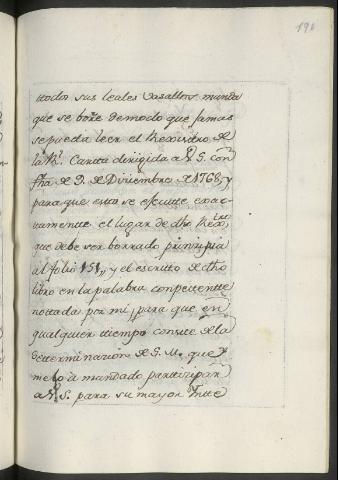 190
ttodos sus leales Vasallos, manda
que se borre de modo que jamas
se pueda leer el Rexistro de
la Rl. Cartta dirigida a V. S. con
fha de 9. de Diziembre de 1768, y
para que esto se efecute exac-
tamentte el lugar de dho Rextro,
que debe ser borrado prinzipia
al folio 151,, y el escritto de dho
libro en la palabra conpetentte
nottada por mi, para que en
qualquier ttiempo conste de la
Determinazion de S. M. que
me ha mandado parttizipar
a V. S. para su mayor Intte